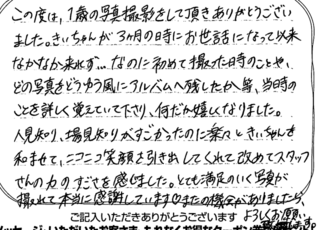 この度は、1歳の写真撮影をして頂きありがとうござい
ました。きぃちゃんが3ヶ月の時にお世話になって以来
なかなか来れず…なのに初めて撮った時のことや、
どの写真をどうゆう風にアルバムへ残したか等、当時の
ことを詳しく覚えていて下さり、何だか嬉しくなりました。
人見知り、場見知りがすごかったのに楽々ときぃちゃんを
和ませて、ニコニコ笑顔を引き出してくれて改めてスタッフ
さんの力のすごさを感じました。とても満足のいく写真が
撮れて本当に感謝しています。またの機会がありましたら、
ご記入いただきありがとうございます よろしくお願い
致します。